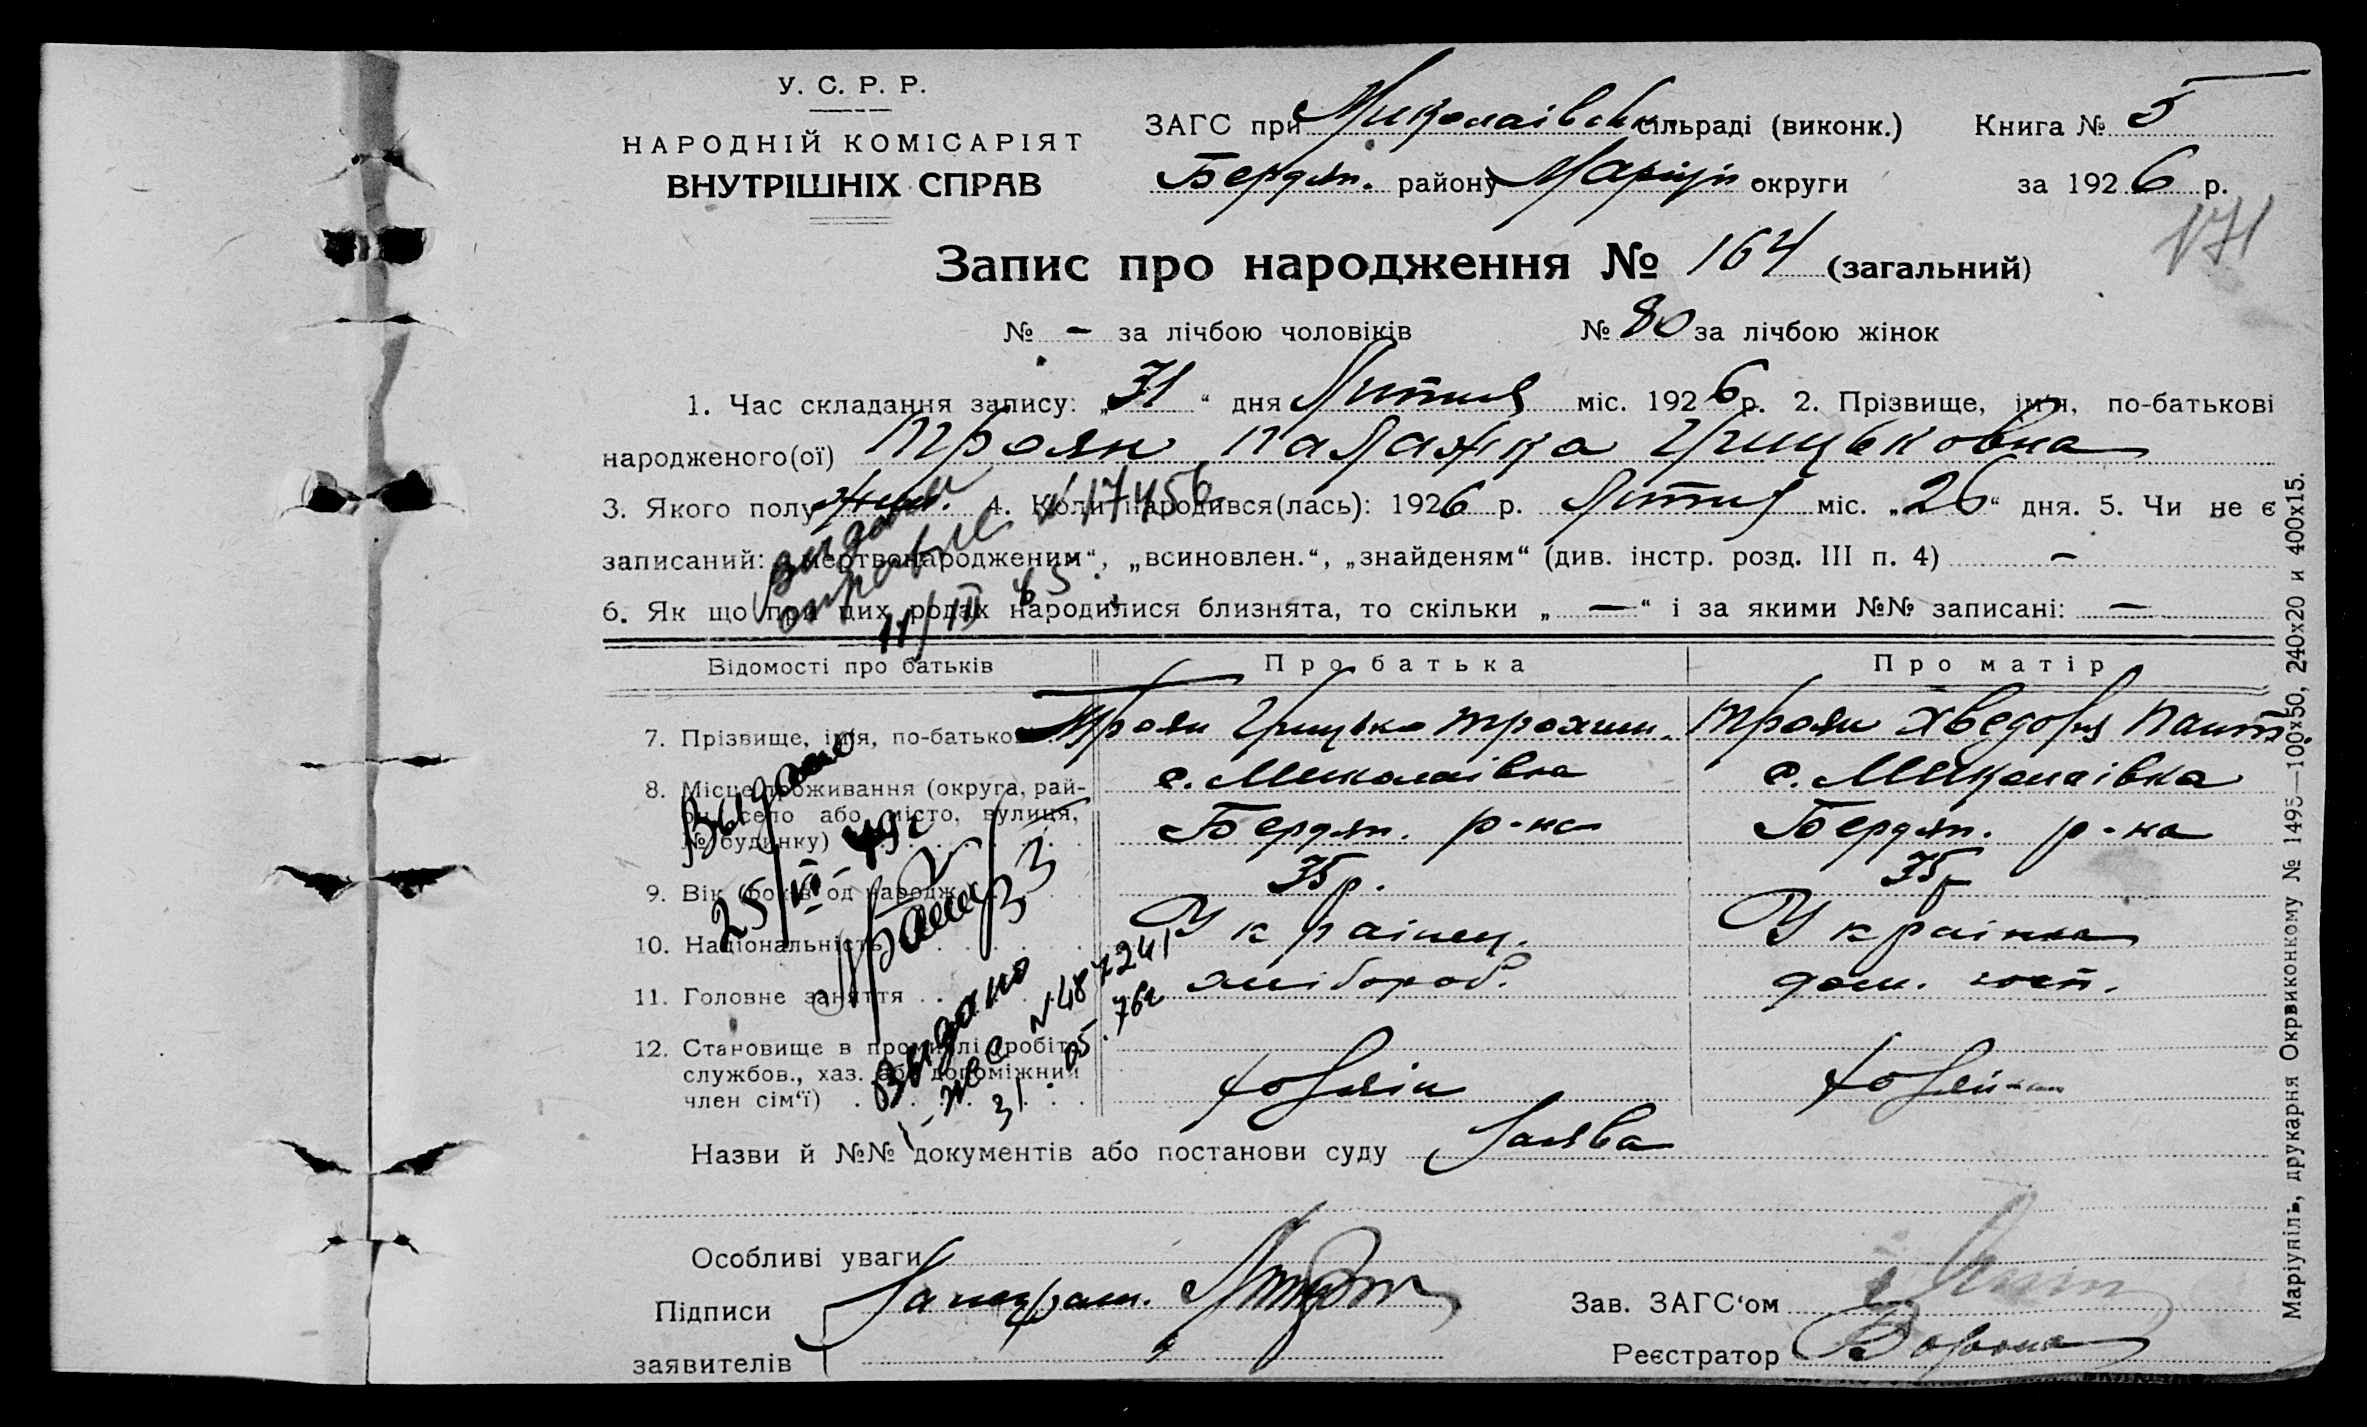 У. С. Р. Р.
НАРОДНІЙ КОМІСАРІЯТ
ВНУТРІШНІХ СПРАВ
ЗАГС при Миколаївськ. сільраді (виконк.) Книга № 5
Бердян. району Маріуп округи за 1926 р.
171
Запис про народження № 164 (загальний)
№ — за лічбою чоловіків № 80 за лічбою жінок
1. Час складання запису: „31“ дня Липня міс. 1926 р. 2. Прізвище, ім'я, по-батькові
народженого(ої) Троян Палажка Грицьковна
3. Якого полу жін. 4. Коли народився(лась): 1926 р. Липня міс. „26“ дня. 5. Чи не є
записаний: „мертвонародженим“, „всиновлен.“, „знайденям“ (див. інстр. розд. III п. 4) —
6. Як що при цих родах народилися близнята, то скільки „ — “ і за якими №№ записані: —
Відомості про батьків Про батька Про матір
7. Прізвище, ім'я, по-батькові Троян Грицько Трохим. Троян Хведора Пант.
8. Місце проживання (округа, рай- с. Миколаівка с. Миколаівка
он, село або місто, вулиця, Бердян. р-на Бердян. р-на
№ будинку)
9. Вік (років од народж.) 35 р. 35 р
10. Національність Украінец. Украінка
11. Головне заняття хлібороб. дом. госп.
12. Становище в промислі (робітн.
службов., хаз. або допоміжний хозяін
член сім'ї)
Видана
справка № 17456
11/III 65
Выдано
25/VII-49г
Видано
№ 487241
31.05.76г
Назви й №№ документів або постанови суду Заява
Особливі уваги
Підписи
заявителів
Зав. ЗАГС'ом
Реєстратор Ворона
Маріупіль, друкарня Окрвиконкому № 1495—100х50, 240х20 и 400х15.